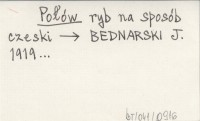 Połów ryb na sposób
czeski → BEDNARSKI J.
1919...